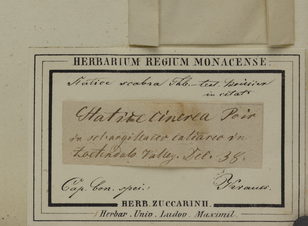 HERBARIUM REGIUM MONACENSE.
Statice scabra Thb. test. Boissier
in citat.
Statice cinerea Poir
in sol. argillaceo calcareo in
Zoetendals Valley. Dec. 38.
Cap. bon. spei: Krauss.
HERB. ZUCCARINII.
Herbar. Univ. Ludov. Maximil.